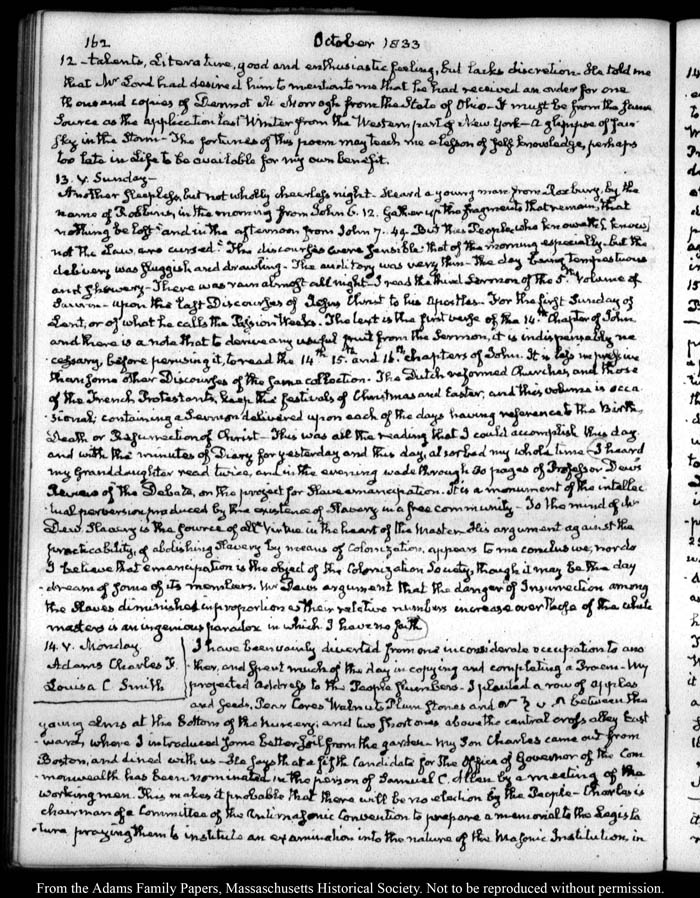 162 October 1833
12 - talents, Literature, good and enthusiastic feeling, but lacks discretion. He told me
that Mr Lord had desired him to mention to me that he had received an order for one
thousand copies of Dermot Mc Morrogh from the State of Ohio. It must be from the same
source as the application last Winter from the Western part of New York - a glimpse of fair
sky in the Storm - The fortunes of this poem may teach me a lesson of self knowledge, perhaps
too late in Life to be available for my own benefit.
13. V. Sunday -
Another sleepless, but not wholly cheerless night - Heard a young man from Roxbury, by the
name of Robbins, in the morning from John 6. 12. Gather up the fragments that remain, that
nothing be lost" and in the afternoon from John 7. 49. But this People who knoweth
not the Law, are cursed." The discourses were sensible: that of the morning especially - but the
delivery was sluggish and drawling - The auditory was very thin - the day being tempestuous
and showery - There was rain almost all night. I read the third Sermon of the 5th Volume of
Saurin - upon the last Discourses of Jesus Christ to his Apostles - For the first Sunday of
Lent, or of what he calls the Passion Weeks. The text is the first verse of the 14th Chapter of John
and there is a note that to derive any useful fruit from the Sermon, it is indispensably ne
cessary, before perusing it, to read the 14th 15th and 16th chapters of John. It is less impressive
than some other Discourses of the same collection. The Dutch reformed Churches, and those
of the French Protestants, keep the festivals of Christmas and Easter, and this volume is occa
sional; containing a Sermon delivered upon each of the days having reference to the Birth,
Death or Resurrection of Christ - This was all the reading that I could accomplish this day
and with the minutes of Diary for yesterday and this day, absorbed my whole time - I heard
my Granddaughter read twice, and in the evening wade through 80 pages of Professor Dew's
Review of the Debate, on the project for Slave emancipation. It is a monument of the intellec
tual perversion produced by the existence of Slavery in a free community - To the mind of Mr
Dew, Slavery is the source of all Virtue in the heart of the Master. His argument against the
practicability, of abolishing Slavery by means of Colonization, appears to me conclusive, nor do
I believe that emancipation is the object of the Colonization Society, though it may be the day
dream of some of its members. Mr Dew's argument that the danger of Insurrection among
the Slaves diminishes in proportion as their relative numbers increase over those of the white
masters is an ingenious paradox in which I have no faith
14. V. Monday.
Adams Charles F.
Louisa C. Smith
I have been vainly diverted from one inconsiderate occupation to ano
ther, and spent much of the day in copying and completing a Poem - My
projected Address to the People slumbers - I planted a row of apples
and seeds, Pear Cores Walnuts Plum Stones and between the
young elms at the bottom of the Nursery; and two short ones above the central cross alley East
ward, where I introduced some better soil from the garden - My Son Charles came out from
Boston, and dined with us - He says that a fifth candidate for the Office of Governor of the Com
monwealth has been nominated in the person of Samuel C. Allen by a meeting of the
working men. This makes it probable that there will be no election by the People - Charles is
chairman of a Committee of the Antimasonic Convention to prepare a memorial to the Legisla
ture praying them to institute an examination into the nature of the Masonic Institution, in
From the Adams Family Papers, Massachusetts Historical Society. Not to be reproduced without permission.